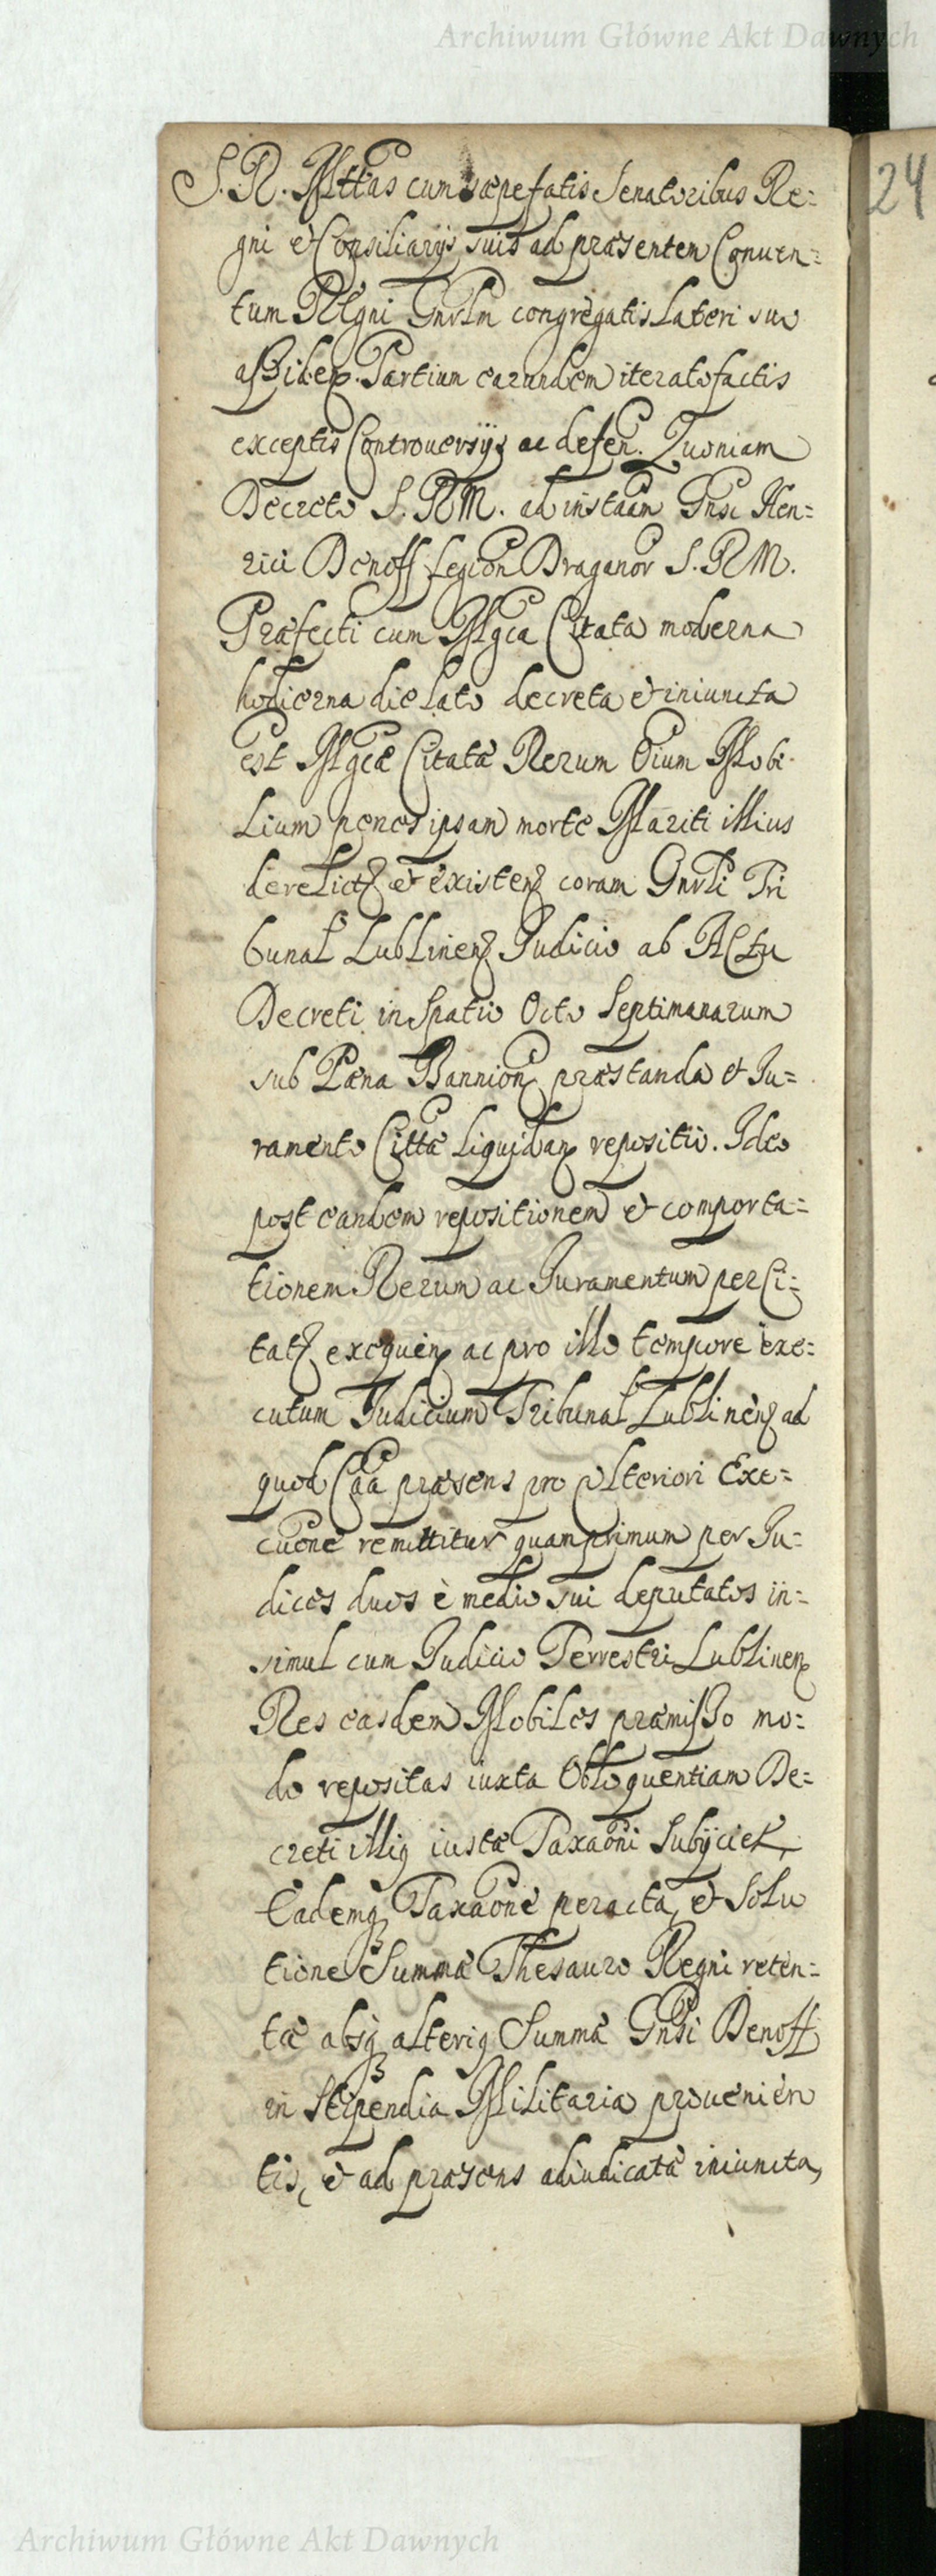 Archiwum Główne Akt Dawnych
24
S. R. Mttas cum sæpefatis Senatoribus Re=
gni et Consiliarijs suis ad præsentem Conuen=
tum Regni Gnrlm congregatis Lateri suo
assiden. Partium earundem iterato factis
exceptis Controuersijs ac defen. Quoniam
Decreto S. R M. ad instãam Gnsi Hen=
rici Denoff Legion Draganor S. R M.
Præfecti cum Mgca Citata moderna
hodierna die Lato decreta et iniuncta
est Mgcæ Citatæ Rerum Oium Mobi
lium penes ipsam morte Mariti illius
derelict et existen coram Gnrli Tri
bunal Lublinen Judicio ab Actu
Decreti in Spatio Octo Septimanarum
sub Pæna Bannion præstanda et Ju=
ramento Cittæ Liquidan repositio. Ideo
post eandem repositionem et comporta=
tionem Rerum ac Juramentum per Ci=
tat exequen ac pro illo tempore exe=
cutum Judicium Tribunal Lublinen ad
quod Cãa præsens pro ulteriori Exe=
cuõne remittitur quamprimum per Ju=
dices duos è medio sui deputatos in=
simul cum Judicio Terrestri Lublinen
Res easdem Mobiles præmisso mo=
do repositas iuxta Obloquentiam De=
creti illiq iustæ Taxaõni Subijciet,
Eademq Taxaõne peracta, et Solu
tione Summæ Thesauro Regni reten=
tæ absq alteriq Summæ Gnsi Denoff
in Stipendia Militaria prouenien
tis, et ad præsens adiudicatæ iniuncta,
Archiwum Główne Akt Dawnych